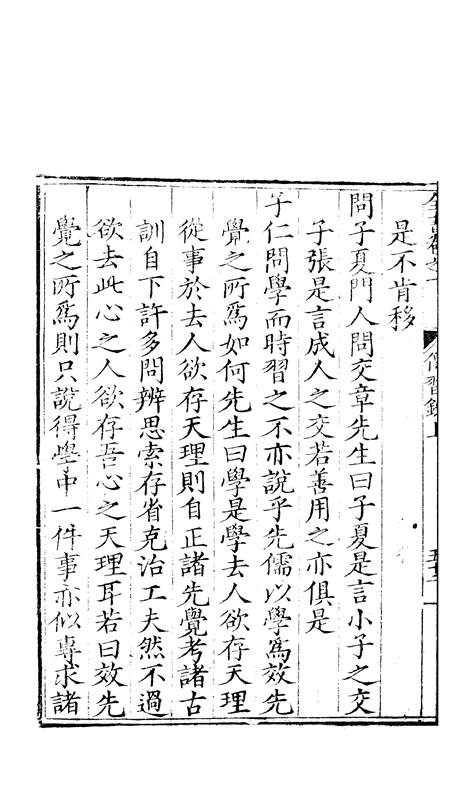 傳習錄上
是不肯移
問子夏門人問交章先生曰子夏是言小子之交
子張是言成人之交若善用之亦俱是
子仁問學而時習之不亦說乎先儒以學爲效先
覺之所爲如何先生曰學是學去人欲存天理
從事於去人欲存天理則自正諸先覺考諸古
訓自下許多問辨思索存省克治工夫然不過
欲去此心之人欲存吾心之天理耳若曰效先
覺之所爲則只說得學中一件事亦似專求諸